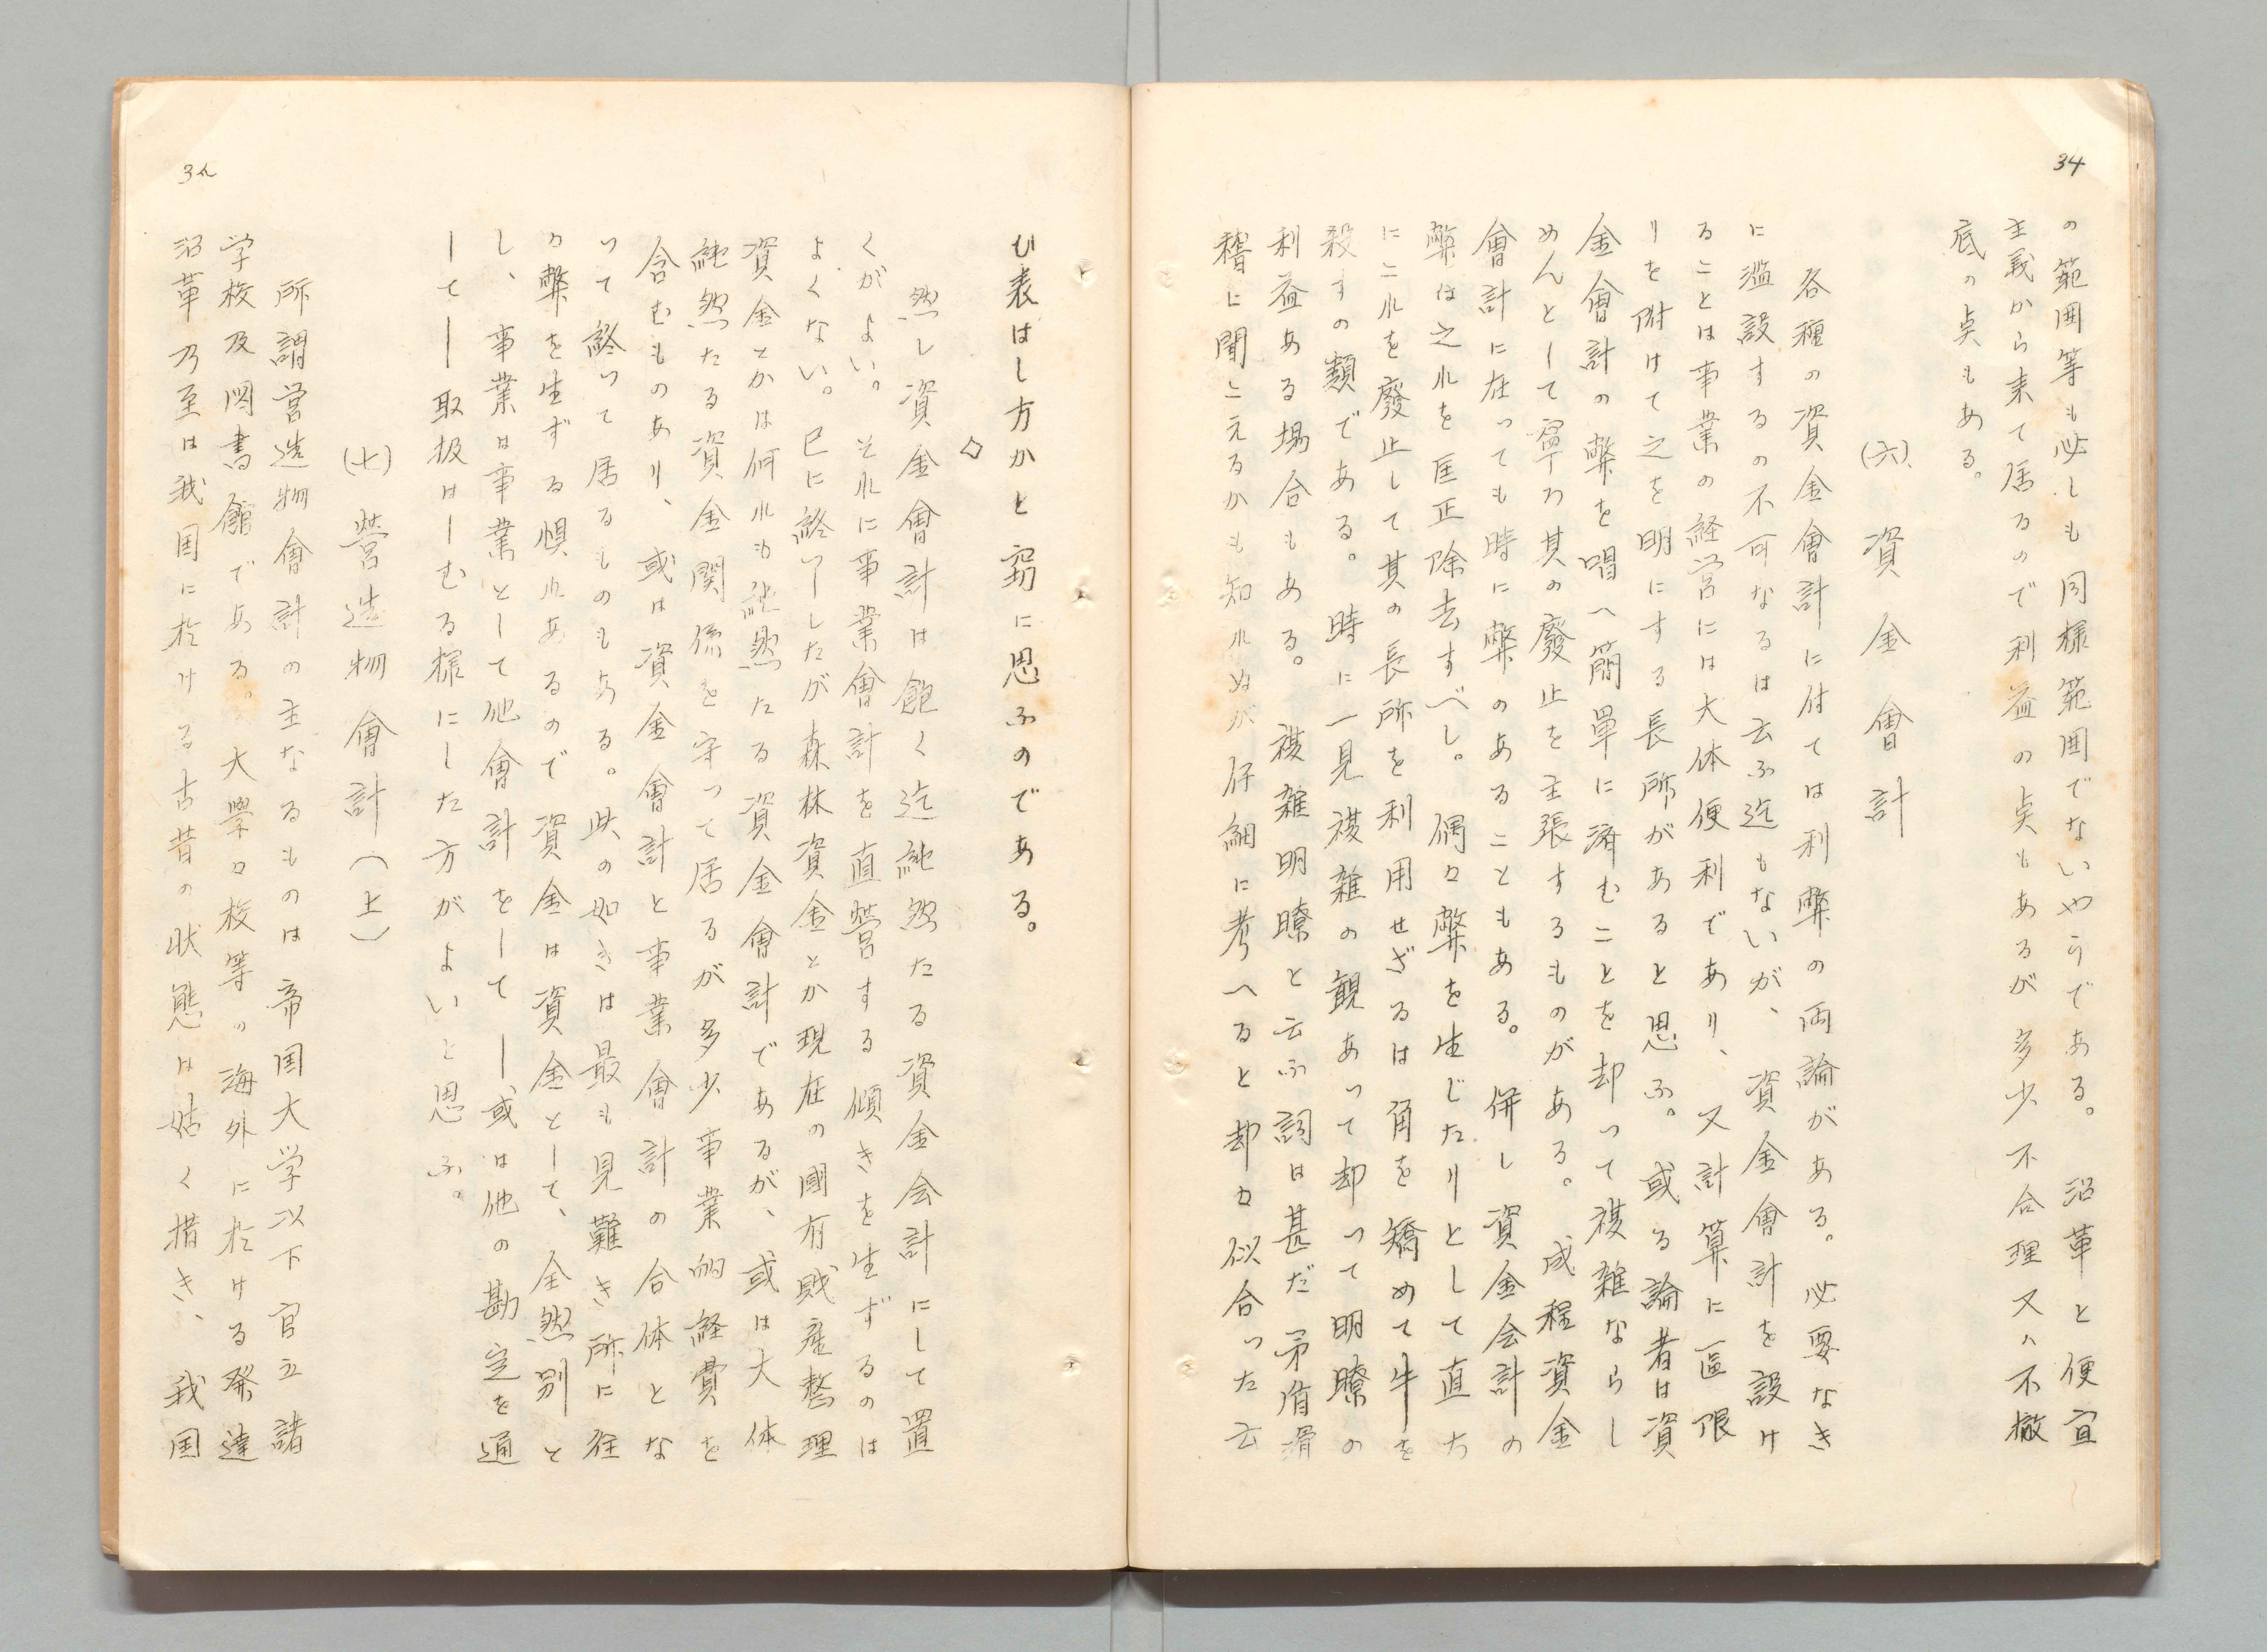 34
の範囲等も必しも同様範囲でないやうである。沿革と便宜
主義から来て居るので利益の点もあるが多少不合理又ハ不徹
底の点もある。
(六)、資金會計
各種の資金會計に付ては利弊の両論がある。必要なき
に濫設するの不可なるは云ふ迄もないが、資金會計を設け
ることは事業の経営には大体便利であり、又計算に區限
りを附けて之を明にする長所があると思ふ。或る論者は資
金會計の弊を唱へ簡単に済むことを却って複雑ならし
めんとして寧ろ其の廢止を主張するものがある。成程資金
會計に在っても時に弊のあることもある。併し資金会計の
弊は之れを匡正除去すべし。偶々弊を生じたりとして直ち
にこれを廢止して其の長所を利用せざるは角を矯めて牛を
殺すの類である。時に一見複雑の観あって却って明瞭の
利益ある場合もある。複雑明瞭と云ふ詞は甚だ矛盾滑
稽に聞こえるかも知れぬが仔細に考へると却々似合った云
ひ表はし方かと窃に思ふのである。
◇
然し資金會計は飽く迄純然たる資金会計にして置
くがよい。それに事業會計を直營する傾きを生ずるのは
よくない。已に終了したが森林資金とか現在の國有財産整理
資金とかは何れも純然たる資金會計であるが、或は大体
純然たる資金関係を守って居るが多少事業的経費を
含むものあり、或は資金會計と事業會計の合体とな
って終って居るものもある。此の如きは最も見難き所に往
々弊を生ずる惧れあるので資金は資金として、全然別と
し、事業は事業として他會計をして―或は他の勘定を通
して―取扱はしむる様にした方がよいと思ふ。
(七)營造物會計(上)
所謂営造物會計の主なるものは帝国大学以下官立諸
学校及図書館である。大學々校等の海外に於ける発達
沿革乃至は我国に於ける古昔の状態は姑く措き、我国